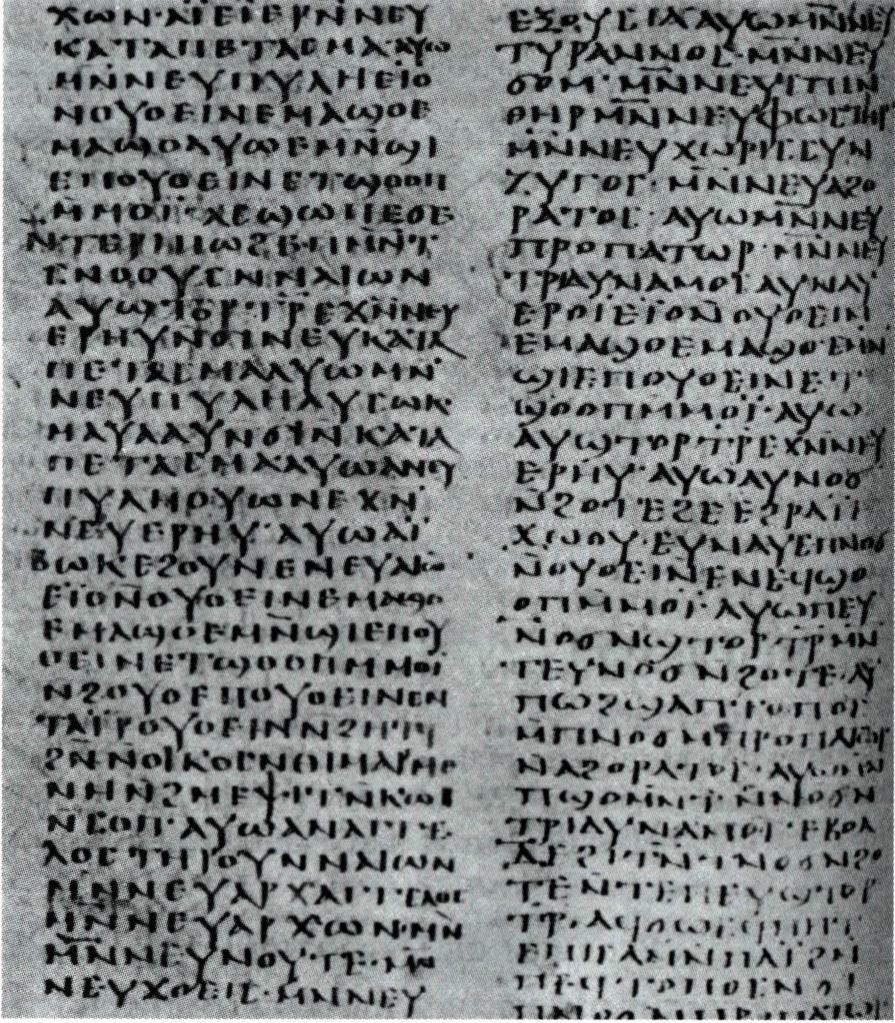 ⲭⲱⲛ·ⲁⲓⲉⲓⲉⲣⲛ̄ⲛⲉⲩ
ⲕⲁⲧⲁⲡⲉⲧⲁⲥⲙⲁⲁⲩⲱ
ⲙⲛ̄ⲛⲉⲩⲡⲩⲗⲏⲉⲓⲟ
ⲛⲟⲩⲟⲉⲓⲛⲉⲙⲁϣⲟⲉ
ⲙⲁϣⲟⲁⲩⲱⲉⲙⲛ̄ϣⲓ
ⲉⲡⲟⲩⲟⲉⲓⲛⲉⲧϣⲟⲟⲡ
ⲙⲙⲟⲓ̈·ⲁⲥϣⲱⲡⲉϭⲉ
ⲛⲧⲉⲣⲓⲡⲱϩⲉⲡⲙⲛ̄ⲧ
ⲥⲛⲟⲟⲩⲥⲛⲛⲁⲓⲱⲛ
ⲁⲩϣⲧⲟⲣⲧⲣ̄ⲉϫⲛ̄ⲛⲉⲩ
ⲉⲣⲏⲩⲛϭⲓⲛⲉⲩⲕⲁⲧⲁ
ⲡⲉⲧⲁⲥⲙⲁⲁⲩⲱⲙⲛ
ⲛⲉⲩⲡⲩⲗⲏⲁⲩⲥⲱⲕ
ⲙⲁⲩⲁⲁⲩⲛϭⲓⲛⲕⲁⲧⲁ
ⲡⲉⲧⲁⲥⲙⲁⲁⲩⲱⲁⲛⲉⲩ
ⲡⲩⲗⲏⲟⲩⲱⲛⲉϫⲛ
ⲛⲉⲩⲉⲣⲏⲩ·ⲁⲩⲱⲁⲓ̈
ⲃⲱⲕⲉϩⲟⲩⲛⲉⲛⲉⲩⲁⲓⲱ
ⲉⲓⲟⲛⲟⲩⲟⲉⲓⲛⲉⲙⲁϣⲟ
ⲉⲙⲁϣⲟⲉⲙⲛ̄ϣⲓⲉⲡⲟⲩ
ⲟⲉⲓⲛⲉⲧϣⲟⲟⲡⲙⲙⲟⲓ̈
ⲛϩⲟⲩⲟⲉⲡⲟⲩⲟⲉⲓⲛⲉⲛ
ⲧⲁⲓ̈ⲣⲟⲩⲟⲉⲓⲛⲛϩⲏⲧϥ
ϩⲛ̄ⲛⲟⲓⲕⲟⲥⲛⲑⲓⲙⲁⲣⲙⲉ
ⲛⲏⲛϩⲙⲉⲯⲓⲧⲛⲕⲱⲃ
ⲛⲥⲟⲡ·ⲁⲩⲱⲁⲛⲁⲅⲅⲉ
ⲗⲟⲥⲧⲏⲣⲟⲩⲛⲛⲁⲓⲱⲛ
ⲙⲛ̄ⲛⲉⲩⲁⲣⲭⲁⲅⲅⲉⲗⲟⲥ
ⲙⲛ̄ⲛⲉⲩⲁⲣⲭⲱⲛ·ⲙⲛ
ⲙⲛ̄ⲛⲉⲩⲛⲟⲩⲧⲉ·ⲙⲛ
ⲛⲉⲩϫⲟⲉⲓⲥ·ⲙⲛⲛⲉⲩ
ⲉⲝⲟⲩⲥⲓⲁⲁⲩⲱⲙⲛ̄ⲛⲉⲩ
ⲧⲩⲣⲁⲛⲛⲟⲥ·ⲙⲛ̄ⲛⲉⲩ
ϭⲟⲙ·ⲙⲛ̄ⲛⲉⲩⲥⲡⲓⲛ
ⲑⲏⲣⲙⲛ̄ⲛⲉⲩⲫⲱⲥⲧⲏⲣ
ⲙⲛ̄ⲛⲉⲩⲭⲱⲣⲓⲥⲥⲩⲛ
ⲍⲩⲅⲟⲥ·ⲙⲛ̄ⲛⲉⲩⲁϩⲟ
ⲣⲁⲧⲟⲥ·ⲁⲩⲱⲙⲛ̄ⲛⲉⲩ
ⲡⲣⲟⲡⲁⲧⲱⲣ·ⲙⲛ̄ⲛⲉⲩ
ⲧⲣⲓⲇⲩⲛⲁⲙⲟⲥⲁⲩⲛⲁⲩ
ⲉⲣⲟⲓ̈ⲉⲓ̈ⲟⲛⲟⲩⲟⲉⲓⲛ
ⲉⲙⲁϣⲟⲉⲙⲁϣⲟⲉⲙⲛ
ϣⲓⲉⲡⲟⲩⲟⲉⲓⲛⲉⲧ
ϣⲟⲟⲡⲙⲙⲟⲓ̈·ⲁⲩⲱ
ⲁⲩϣⲧⲟⲣⲧⲣⲉϫⲛ̄ⲛⲉⲩ
ⲉⲣⲏⲩ·ⲁⲩⲱⲁⲩⲛⲟϭ
ⲛϩⲟⲧⲉϩⲉⲉϩⲣⲁⲓ̈
ϫⲱⲟⲩ·ⲉⲩⲛⲁⲩⲉⲡⲛⲟϭ
ⲛⲟⲩⲟⲉⲓⲛⲉⲛⲉϥϣⲟ
ⲟⲡⲙⲙⲟⲓ̈·ⲁⲩⲱⲡⲉⲩ
ⲛⲟϭⲛϣⲧⲟⲣⲧⲣⲙⲛ
ⲧⲉⲩⲛⲟϭⲛϩⲟⲧⲉ·ⲁⲩ
ⲡⲱϩϣⲁⲡⲧⲟⲡⲟⲥ
ⲙⲡⲛⲟϭⲙⲡⲣⲟⲡⲁⲧⲱⲣ
ⲛⲁϩⲟⲣⲁⲧⲟⲥ·ⲁⲩⲱⲙⲛ
ⲡϣⲟⲙⲛⲧⲛⲛⲟϭⲛ
ⲧⲣⲓⲇⲩⲛⲁⲙⲟⲥ·ⲉⲃⲟⲗ
ⲇⲉϩⲓⲧⲛⲧⲛⲟϭⲛϩⲟ
ⲧⲉⲛⲧⲉⲡⲉⲩϣⲧⲟⲣ